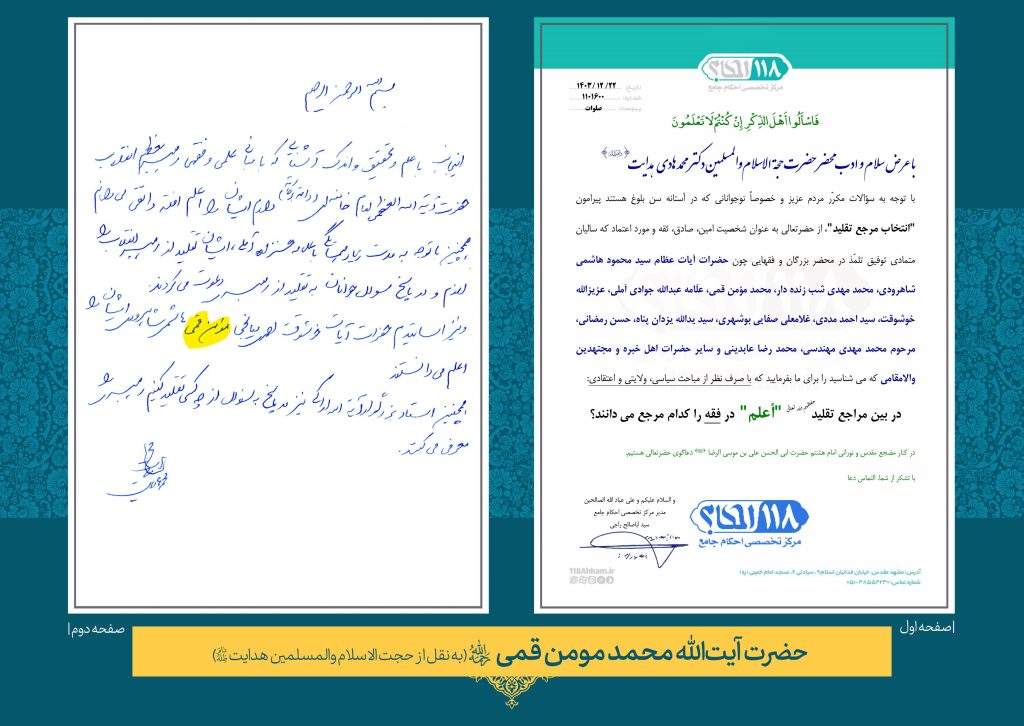 ۱۱۸ احکام
مرکز تخصصی احکام جامع
تاریخ: ۱۴۰۳/۱۲/۲۲
شماره: ۱۱۰۱۶۰۰
پیوست: صلوات
فَاسْأَلُوا أَهْلَ الذِّكْرِ إِنْ كُنْتُمْ لَا تَعْلَمُونَ
با عرض سلام و ادب محضر حضرت حجة الاسلام والمسلمین دکتر محمد هادی هدایت
با توجه به سؤالات مکرّر مردم عزیز و خصوصاً نوجوانانی که در آستانه سن بلوغ هستند پیرامون
"انتخاب مرجع تقلید"، از حضرتعالی به عنوان شخصیت امین، صادق، ثقه و مورد اعتماد که سالیان
متمادی توفیق تلمّذ در محضر بزرگان و فقهایی چون حضرات آیات عظام سید محمود هاشمی
شاهرودی، محمد مهدی شب زنده دار، محمد مؤمن قمی، علّامه عبدالله جوادی آملی، عزیزالله
خوشوقت، سید احمد مددی، غلامعلی صفایی بوشهری، سید یدالله یزدان پناه، حسن رمضانی،
مرحوم محمد مهدی مهندسی، محمد رضا عابدینی و سایر حضرات اهل خبره و مجتهدین
والامقامی که می شناسید را برای ما بفرمایید که با صرف نظر از مباحث سیاسی، ولایتی و اعتقادی:
در بین مراجع تقلید "أعلم" در فقه را کدام مرجع می دانند؟
در کنار مضجع مقدس و نورانی امام هشتم حضرت ابی الحسن علی بن موسی الرضا دعاگوی حضرتعالی هستیم.
با تشکر از شما، التماس دعا
و السلام علیکم و علی عباد الله الصالحین
مدیر مرکز تخصصی احکام جامع
سید اباصالح راجی
۱۱۸ احکام
مرکز تخصصی احکام جامع
118Ahkam.ir
آدرس: مشهد مقدس، خیابان فدائیان اسلام۹، سیادتی ۶، مسجد امام خمینی (ره)
شماره تماس: ۳۸۵۵۲۲۳۰-۰۵۱
|صفحه اول
بسم الله الرحمن الرحیم
اینجانب با علم و تحقیق و اندک آشنایی که با مبانی علمی و فقهی رهبر معظم انقلاب
حضرت آیة الله العظمی امام خامنه‌ای دارم ایشان را اعلم افقه و اتقی می دانم
همچنین با توجه به مدت زیاد علامه حسن زاده آملی، ایشان تقلید از رهبر انقلاب را
لازم و در پاسخ سوال جوانان به تقلید از رهبری دعوت می کردند.
و نیز اساتیدم حضرات آیات خوشوقت مؤمن قمی هاشمی شاهرودی ایشان را
اعلم می دانستند
همچنین استاد بزرگوار آیة الله نیز در پاسخ به سوال از چه کسی تقلید کنیم رهبری را
معرفی می کنند.
صفحه دوم|
حضرت آیت‌الله محمد مومن قمی رحمه‌الله (به نقل از حجت الاسلام والمسلمین هدایت)